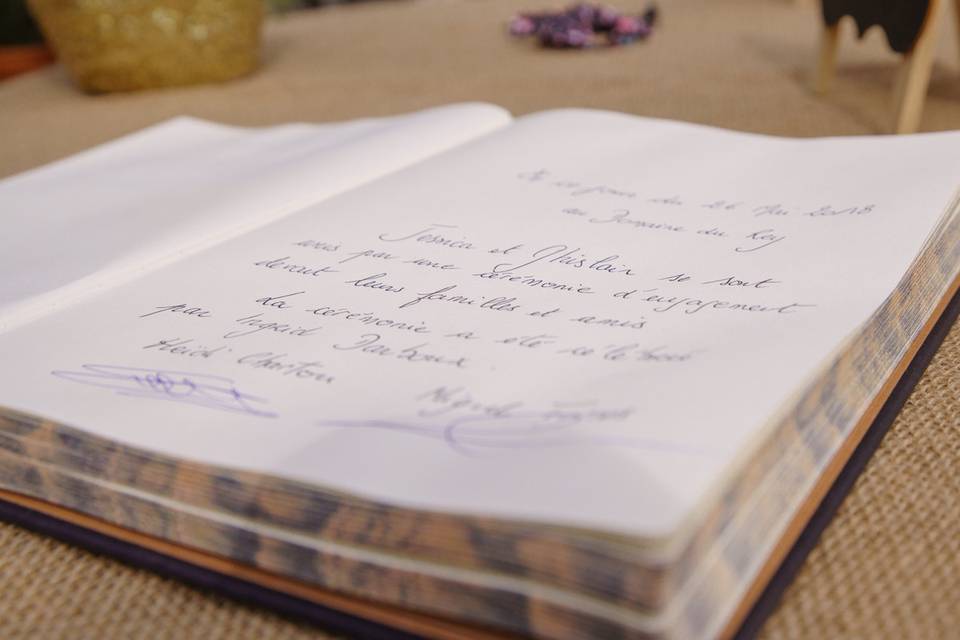 En ce jour du 26 Mai 2018
au Domaine du Rey
Jessica et Ghislain se sont
unis par une cérémonie d'engagement
devant leurs familles et amis
La cérémonie a été célébrée
par Ingrid Darboux.
Heidi Charton
Miguel